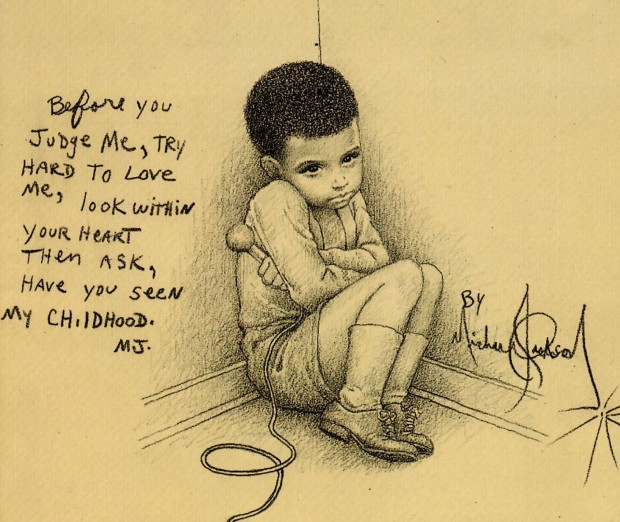 Before you
Judge Me, TRY
HARD TO LOVE
Me,
look within
YOUR HEART
THEN ASK,
HAVE YOU SEEN
MY CHILDHOOD.
MJ.
BY
Michael Jackson